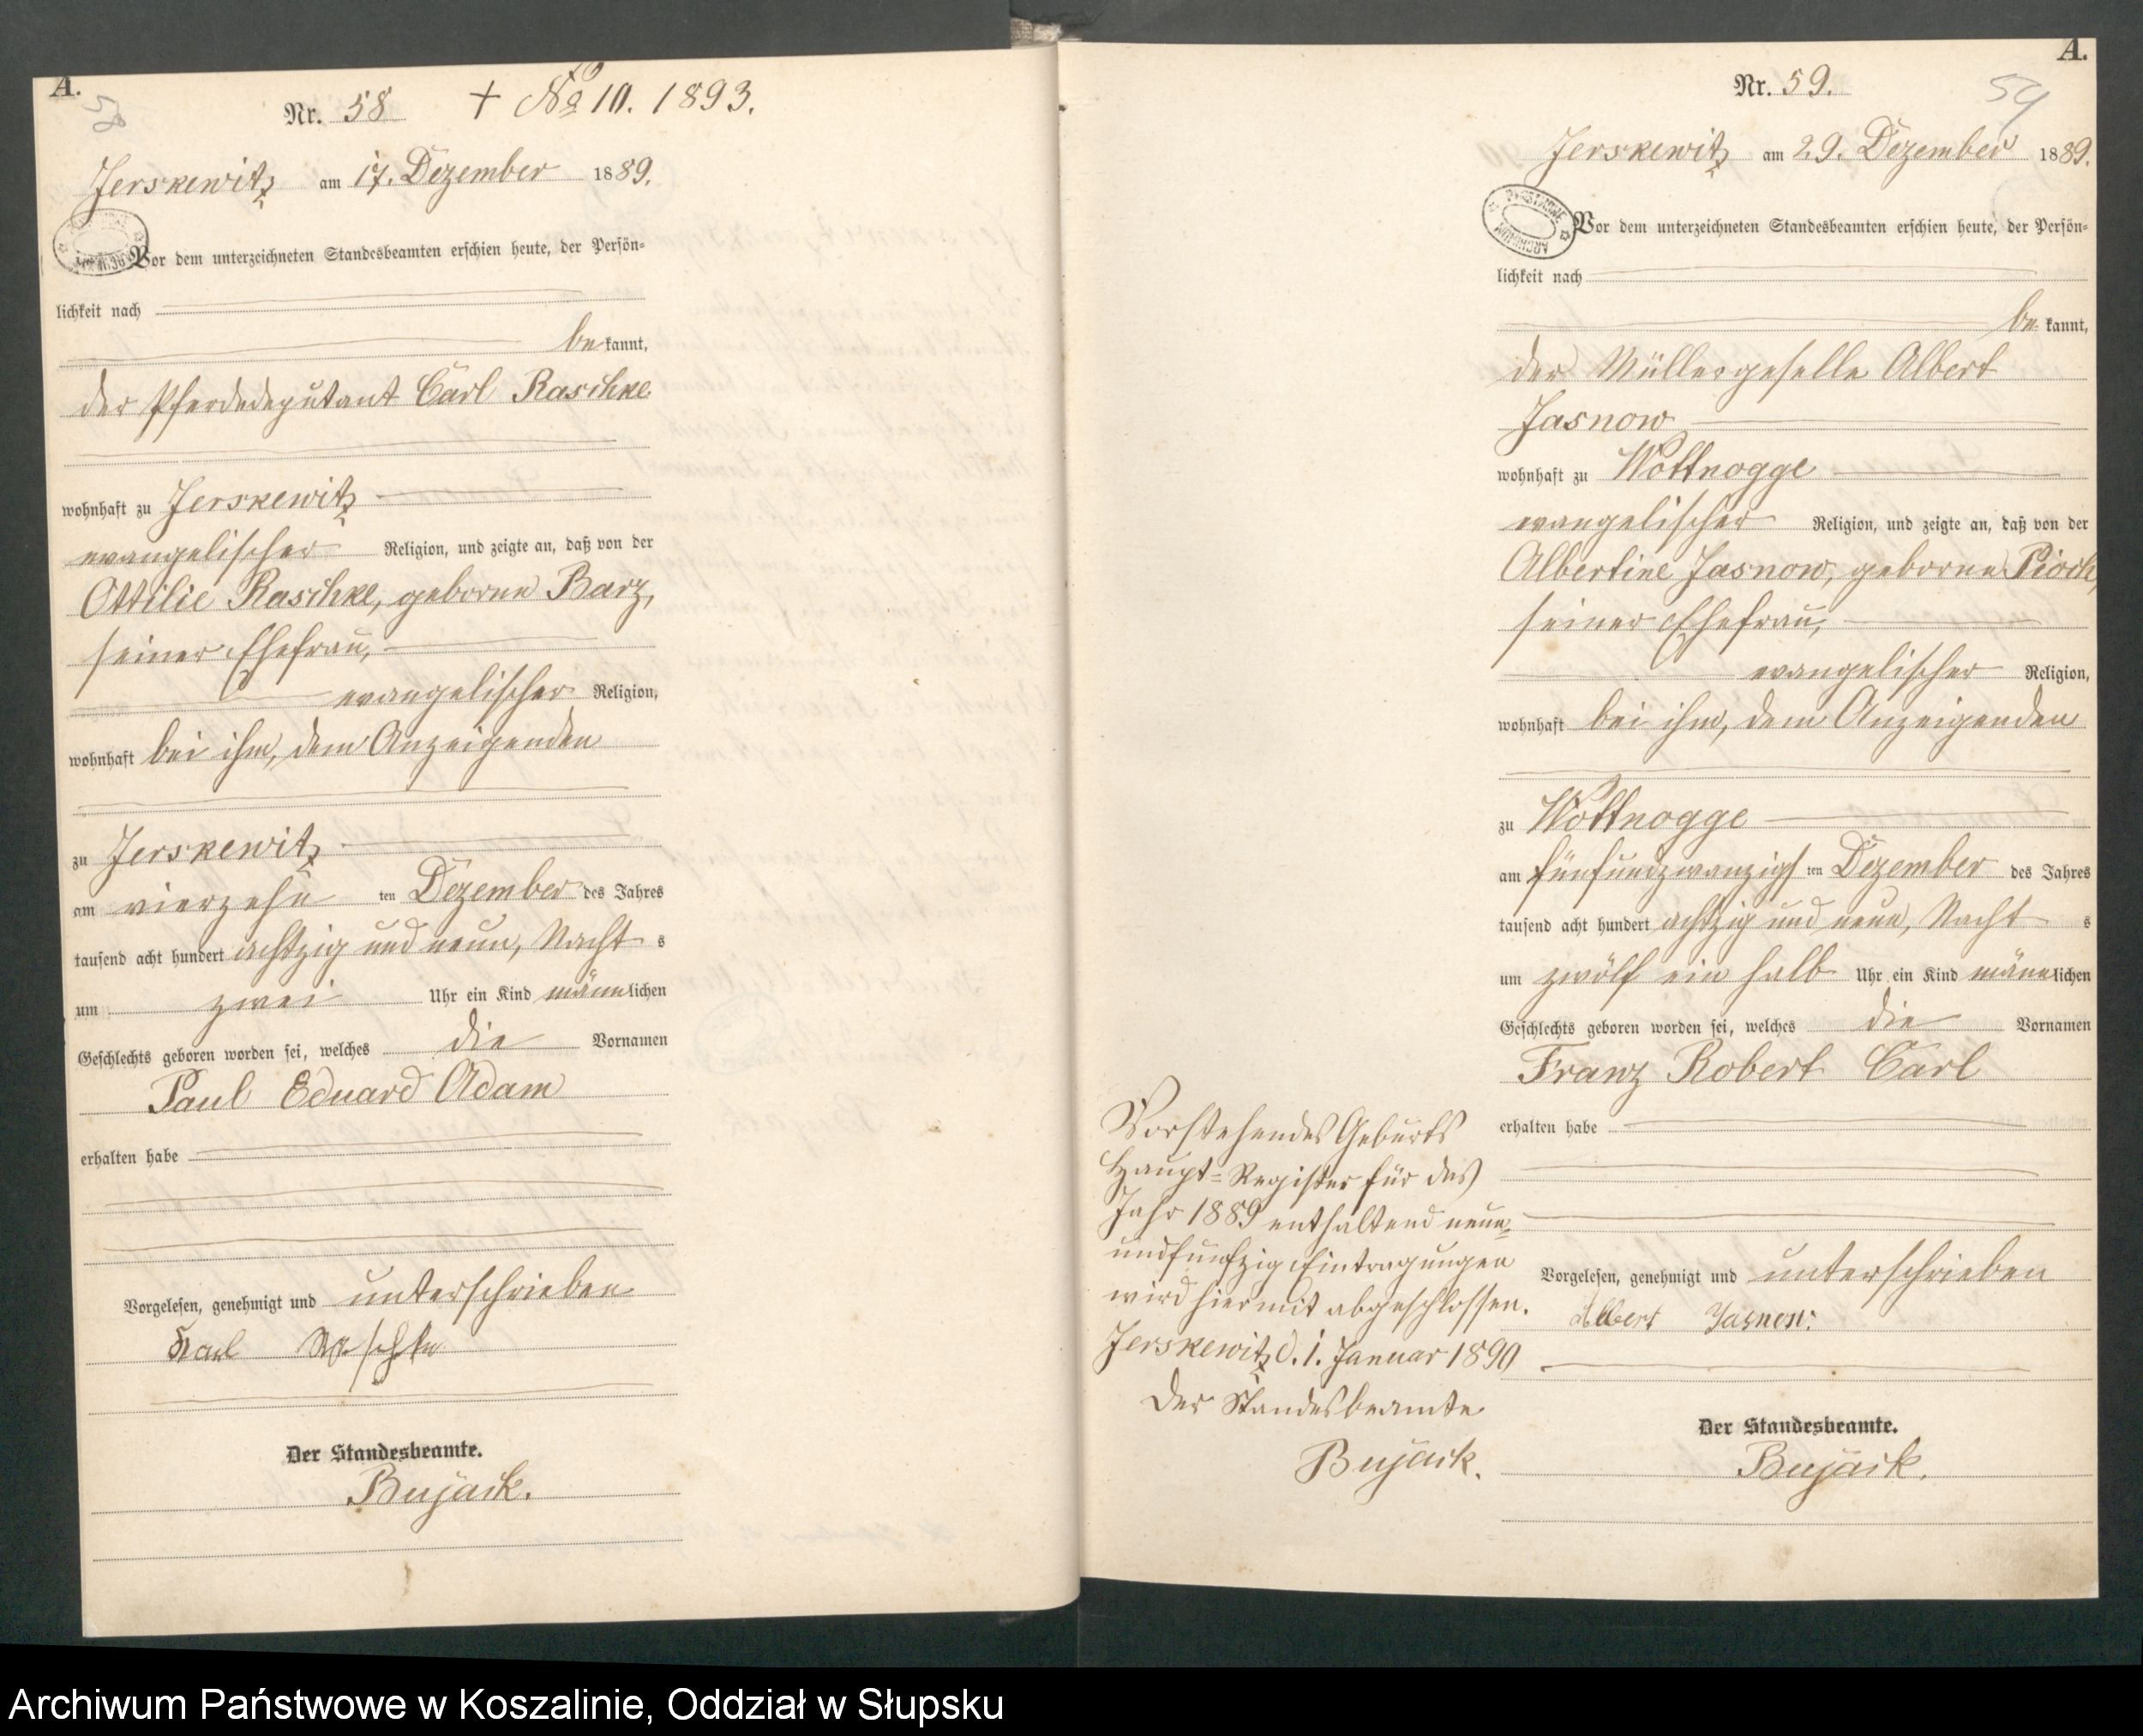 A.
58
Nr. 58 + No 10. 1893.
Jerskewitz am 17. Dezember 1889.
Vor dem unterzeichneten Standesbeamten erschien heute, der Persön-
lichkeit nach
bekannt,
der Pferdedeputant Carl Raschke
wohnhaft zu Jerskewitz
evangelischer Religion, und zeigte an, daß von der
Ottilie Raschke, geborne Barz,
seiner Ehefrau,
evangelischer Religion,
wohnhaft bei ihm, dem Anzeigenden
zu Jerskewitz
am vierzehn ten Dezember des Jahres
tausend acht hundert achtzig und neun, Nacht s
um zwei Uhr ein Kind männlichen
Geschlechts geboren worden sei, welches die Vornamen
Paul Eduard Adam
erhalten habe
Vorgelesen, genehmigt und unterschrieben
Karl Raschke
Der Standesbeamte.
Bujack.
A.
Nr. 59.
59
Jerskewitz am 29. Dezember 1889.
ARCHIWUM
Vor dem unterzeichneten Standesbeamten erschien heute, der Persön-
lichkeit nach
bekannt,
der Müllergeselle Albert
Jasnow
wohnhaft zu Wottnogge
evangelischer Religion, und zeigte an, daß von der
Albertine Jasnow, geborne Pioch,
seiner Ehefrau,
evangelischer Religion,
wohnhaft bei ihm, dem Anzeigenden
zu Wottnogge
am fünfundzwanzigsten Dezember des Jahres
tausend acht hundert achtzig und neun, Nacht s
um zwölf ein halb Uhr ein Kind männlichen
Geschlechts geboren worden sei, welches die Vornamen
Franz Robert Carl
erhalten habe
Vorgelesen, genehmigt und unterschrieben
Albert Jasnow.
Der Standesbeamte.
Bujack.
Vorstehendes Geburts
Haupt-Register für das
Jahr 1889 enthaltend neun-
undfünfzig Eintragungen
wird hiermit abgeschlossen.
Jerskewitz d. 1. Januar 1890
Der Standesbeamte
Bujack.
Archiwum Państwowe w Koszalinie, Oddział w Słupsku